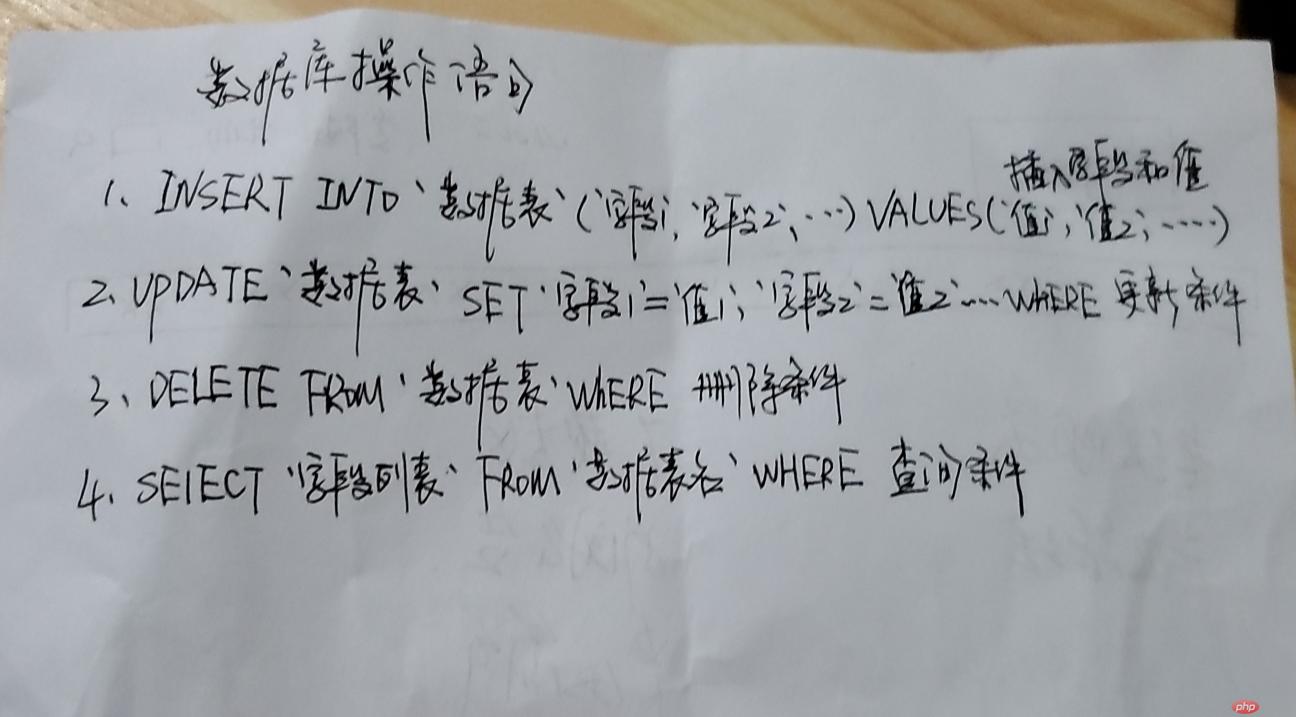 数据库操作语句
插入字段和值
1、INSERT INTO `数据表` (`字段1`, `字段2`, ...) VALUES('值1', '值2', ......)
2、UPDATE `数据表` SET `字段1`='值1', `字段2`='值2' .... WHERE 更新条件
3、DELETE FROM `数据表` WhERE 删除条件
4、SElECT `字段列表` FROM `数据表名` WHERE 查询条件
php